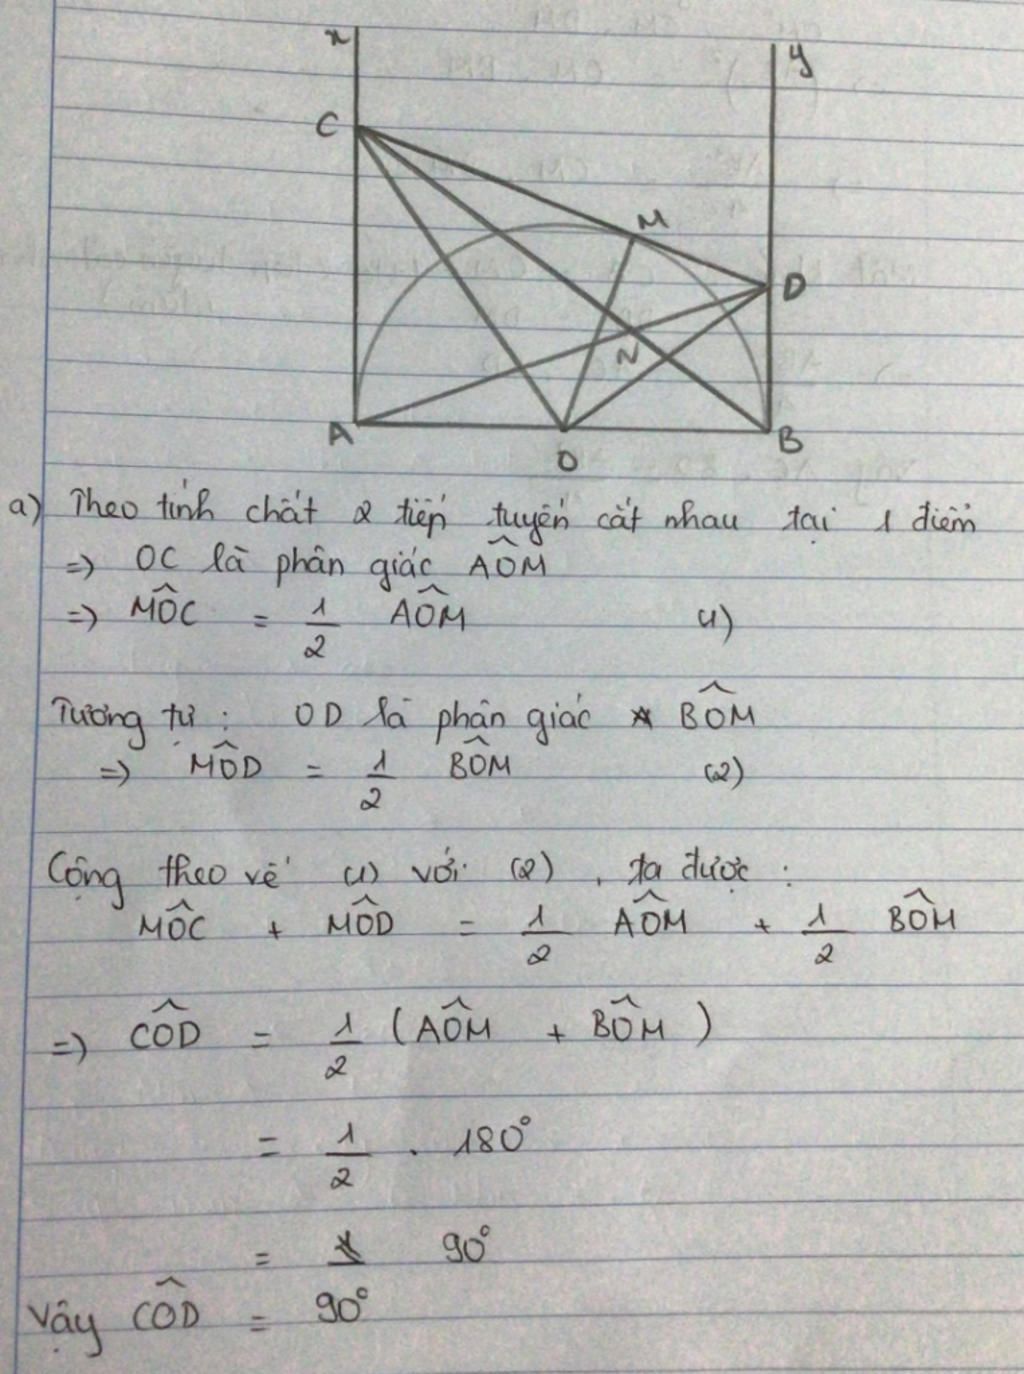 x
y
C
M
D
N
A
O
B
a) Theo tính chất 2 tiếp tuyến cắt nhau tại 1 điểm
=> OC là phân giác AÔM
=> MÔC = 1/2 AÔM (1)
Tương tự : OD là phân giác BÔM
=> MÔD = 1/2 BÔM (2)
Cộng theo vế (1) với (2) , ta được :
MÔC + MÔD = 1/2 AÔM + 1/2 BÔM
=> CÔD = 1/2 (AÔM + BÔM)
= 1/2 . 180°
= 90°
Vậy CÔD = 90°